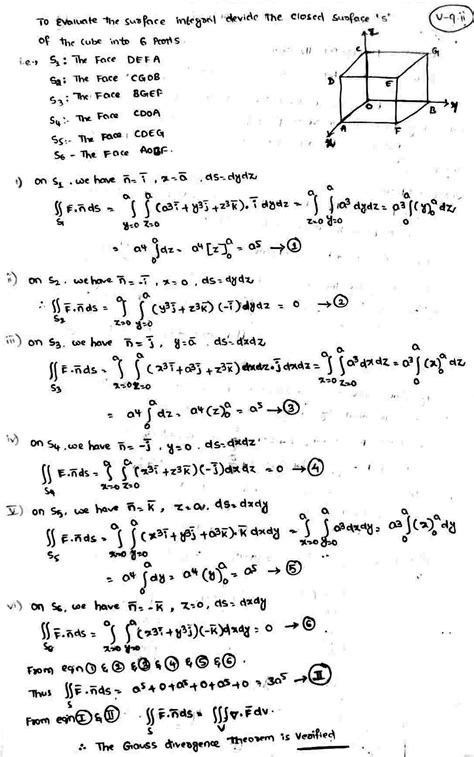 To evaluate the surface integral devide the closed surface 's'
V-9.ii
of the cube into 6 Parts.
i.e., S₁: The Face DEFA
S₂: The Face CGOB
S₃: The Face BGEF
S₄:- The Face CDOA
S₅:- The Face CDEG
S₆ - The Face AOBF.
Z
C
G
D
E
O
B
y
A
F
x
i) on S₁, we have n̄=ī, x=a, ds=dydz
∬_S₁ F.n̄ds = ∫_{y=0}^{a} ∫_{z=0}^{a} (a³ī+y³j̄+z³k̄).ī dydz = ∫_{z=0}^{a} ∫_{y=0}^{a} a³dydz = a³∫_0^a (y)_0^a dz
= a⁴ ∫_0^a dz = a⁴[z]_0^a = a⁵ → ①
ii) on S₂, we have n̄=-ī, x=0, ds=dydz
∴ ∬_S₂ F.n̄ds = ∫_{z=0}^{a} ∫_{y=0}^{a} (y³j̄+z³k̄)(-ī)dydz = 0 → ②
iii) on S₃, we have n̄=j̄, y=a ds=dxdz
∬_S₃ F.n̄ds = ∫_{x=0}^{a} ∫_{z=0}^{a} (x³ī+a³j̄+z³k̄) .j̄ dxdz = ∫_{x=0}^{a} ∫_{z=0}^{a} a³dxdz = a³∫_0^a (x)_0^a dz
= a⁴ ∫_0^a dz = a⁴(z)_0^a = a⁵ → ③
iv) on S₄, we have n̄=-j̄, y=0, ds=dxdz
∬_S₄ F.n̄ds = ∫_{x=0}^{a} ∫_{z=0}^{a} (x³ī+z³k̄)(-j̄)dxdz = 0 → ④
V) on S₅, we have n̄=k̄, z=a, ds=dxdy
∬_S₅ F.n̄ds = ∫_{x=0}^{a} ∫_{y=0}^{a} (x³ī+y³j̄+a³k̄).k̄ dxdy = ∫_{x=0}^{a} ∫_{y=0}^{a} a³dxdy = a³∫_0^a (x)_0^a dy
= a⁴ ∫_0^a dy = a⁴(y)_0^a = a⁵ → ⑤
vi) on S₆, we have n̄=-k̄, z=0, ds=dxdy
∬_S₆ F̄.n̄ds = ∫_{x=0}^{a} ∫_{y=0}^{a} (x³ī+y³j̄)(-k̄)dxdy = 0 → ⑥
From eqn ① & ② & ③ & ④ & ⑤ & ⑥.
Thus ∬_S F̄.n̄ds = a⁵+0+a⁵+0+a⁵+0 = 3a⁵ → Ⅱ
From eqn Ⅰ & Ⅱ ∬_S F̄.n̄ds = ∭_V ∇.F̄dv.
∴ The Gauss divergence Theorem is verified